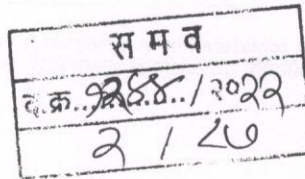 स म व
द.क्र. १२४४ / २०२२
२ / ८७